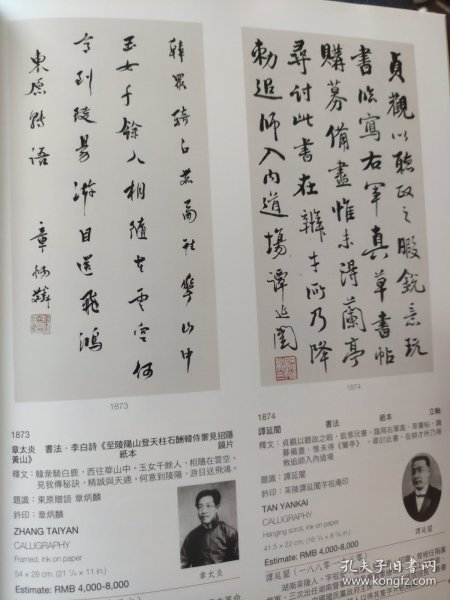 韓眾騎白鹿西往華山中
玉女千餘人相隨在雲空何
意到陵易游目送飛鴻
東原贈語 章炳麟
1873
貞觀以聽政之暇銳意玩
書臨寫右軍真草書帖
購募備盡惟未得蘭亭
尋討此書在辯才所乃降
勅追師入內道場譚延闓
1874
1873
章太炎 書法·李白詩《至陵陽山登天柱石酬韓侍禦見招隱
黃山》 紙本 鏡片
釋文：韓衆騎白鹿，西往華山中，玉女千餘人，相隨在雲空。
見我傳秘訣，精誠與天通。何意到陵陽，游目送飛鴻。
題識：東原贈語 章炳麟
鈐印：章炳麟
ZHANG TAIYAN
CALLIGRAPHY
Framed, ink on paper
54 × 28 cm. (21 1/4 × 11 in.)
Estimate: RMB 4,000-8,000
章太炎
1874
譚延闓 書法 紙本 立軸
釋文：貞觀以聽政之暇，銳意玩書，臨寫右軍真草書帖，購
募備盡，惟未得《蘭亭》。尋討此書，在辯才所乃降
敕追師入內道場
題識：譚延闓
鈐印：茶陵譚延闓字祖庵印
TAN YANKAI
CALLIGRAPHY
Hanging scroll, ink on paper
41.5 × 22 cm.
Estimate: RMB 4,000-8,000
譚延闓
孔夫子旧书网